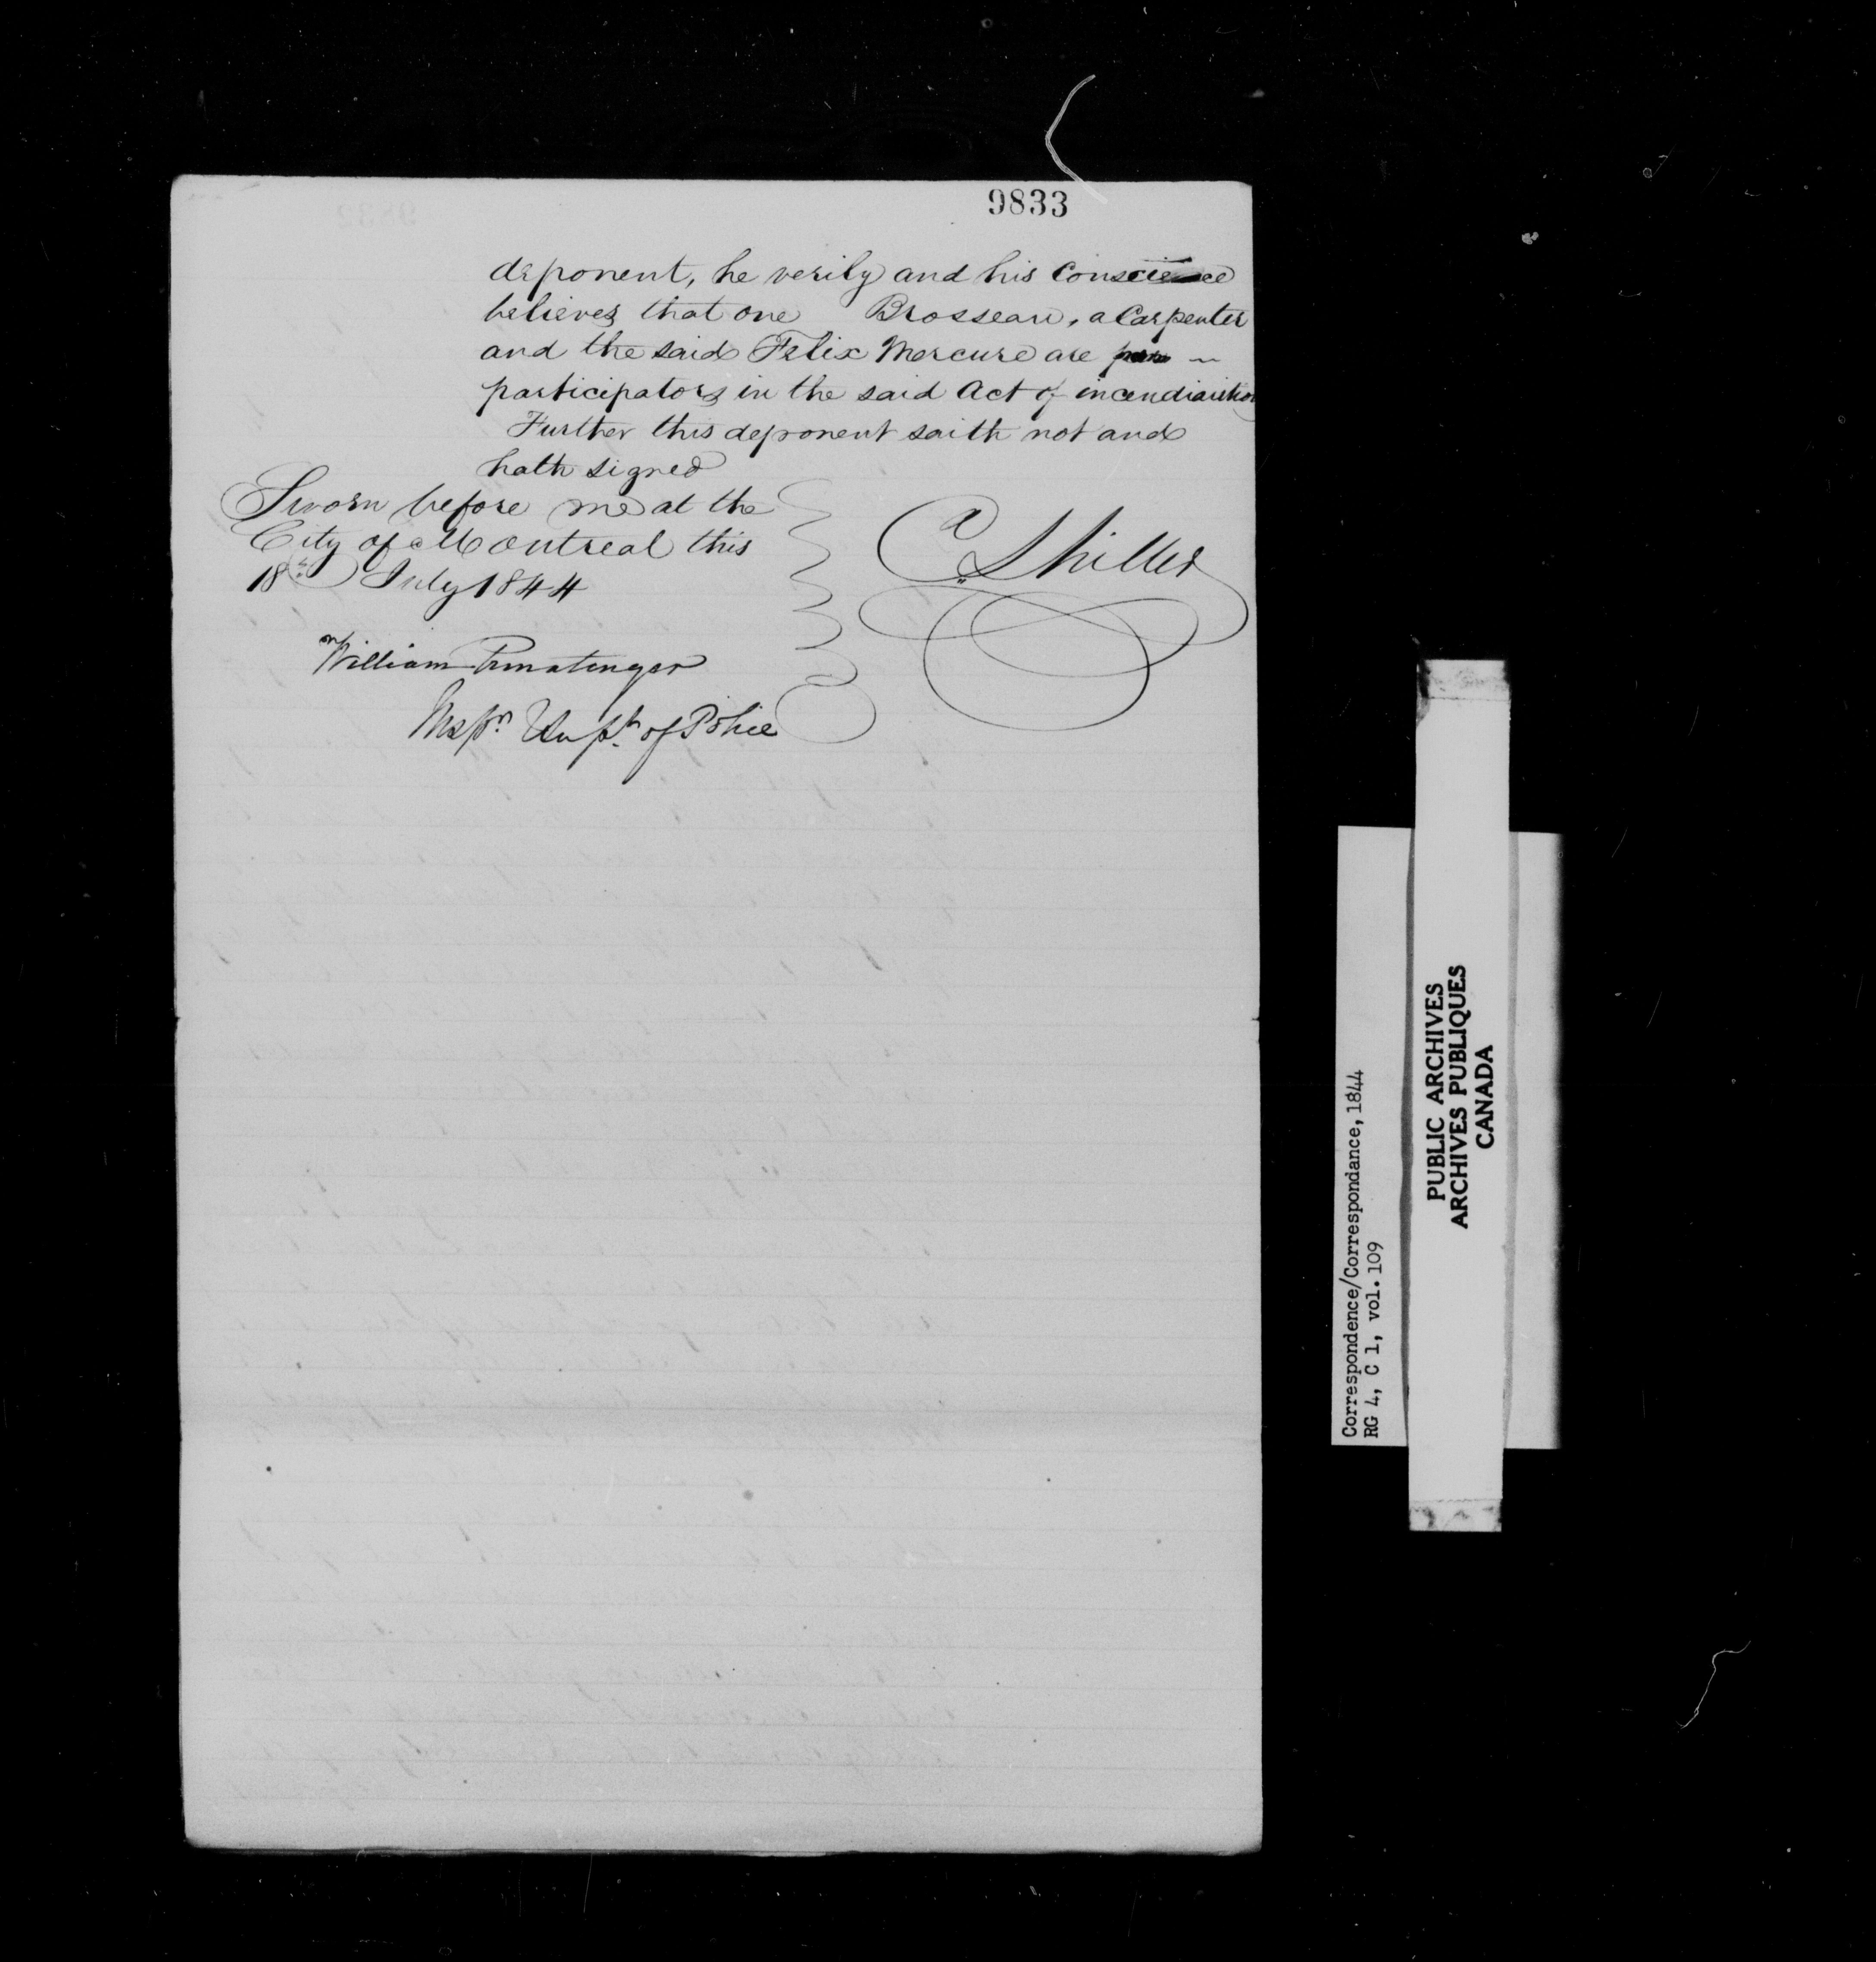 9833
deponent, he verily and his Conscience
believes that one Brosseau, a Carpenter
and the said Felix Mercure are
participators in the said Act of incendiarition
Further this deponent saith not and
hath signed
Sworn before me at the
City of Montreal this
18th July 1844
C. Shiller
William Ermatinger
Inspr. & Supt. of Police
Correspondence/Correspondance, 1844
RG 4, C 1, vol. 109
PUBLIC ARCHIVES
ARCHIVES PUBLIQUES
CANADA